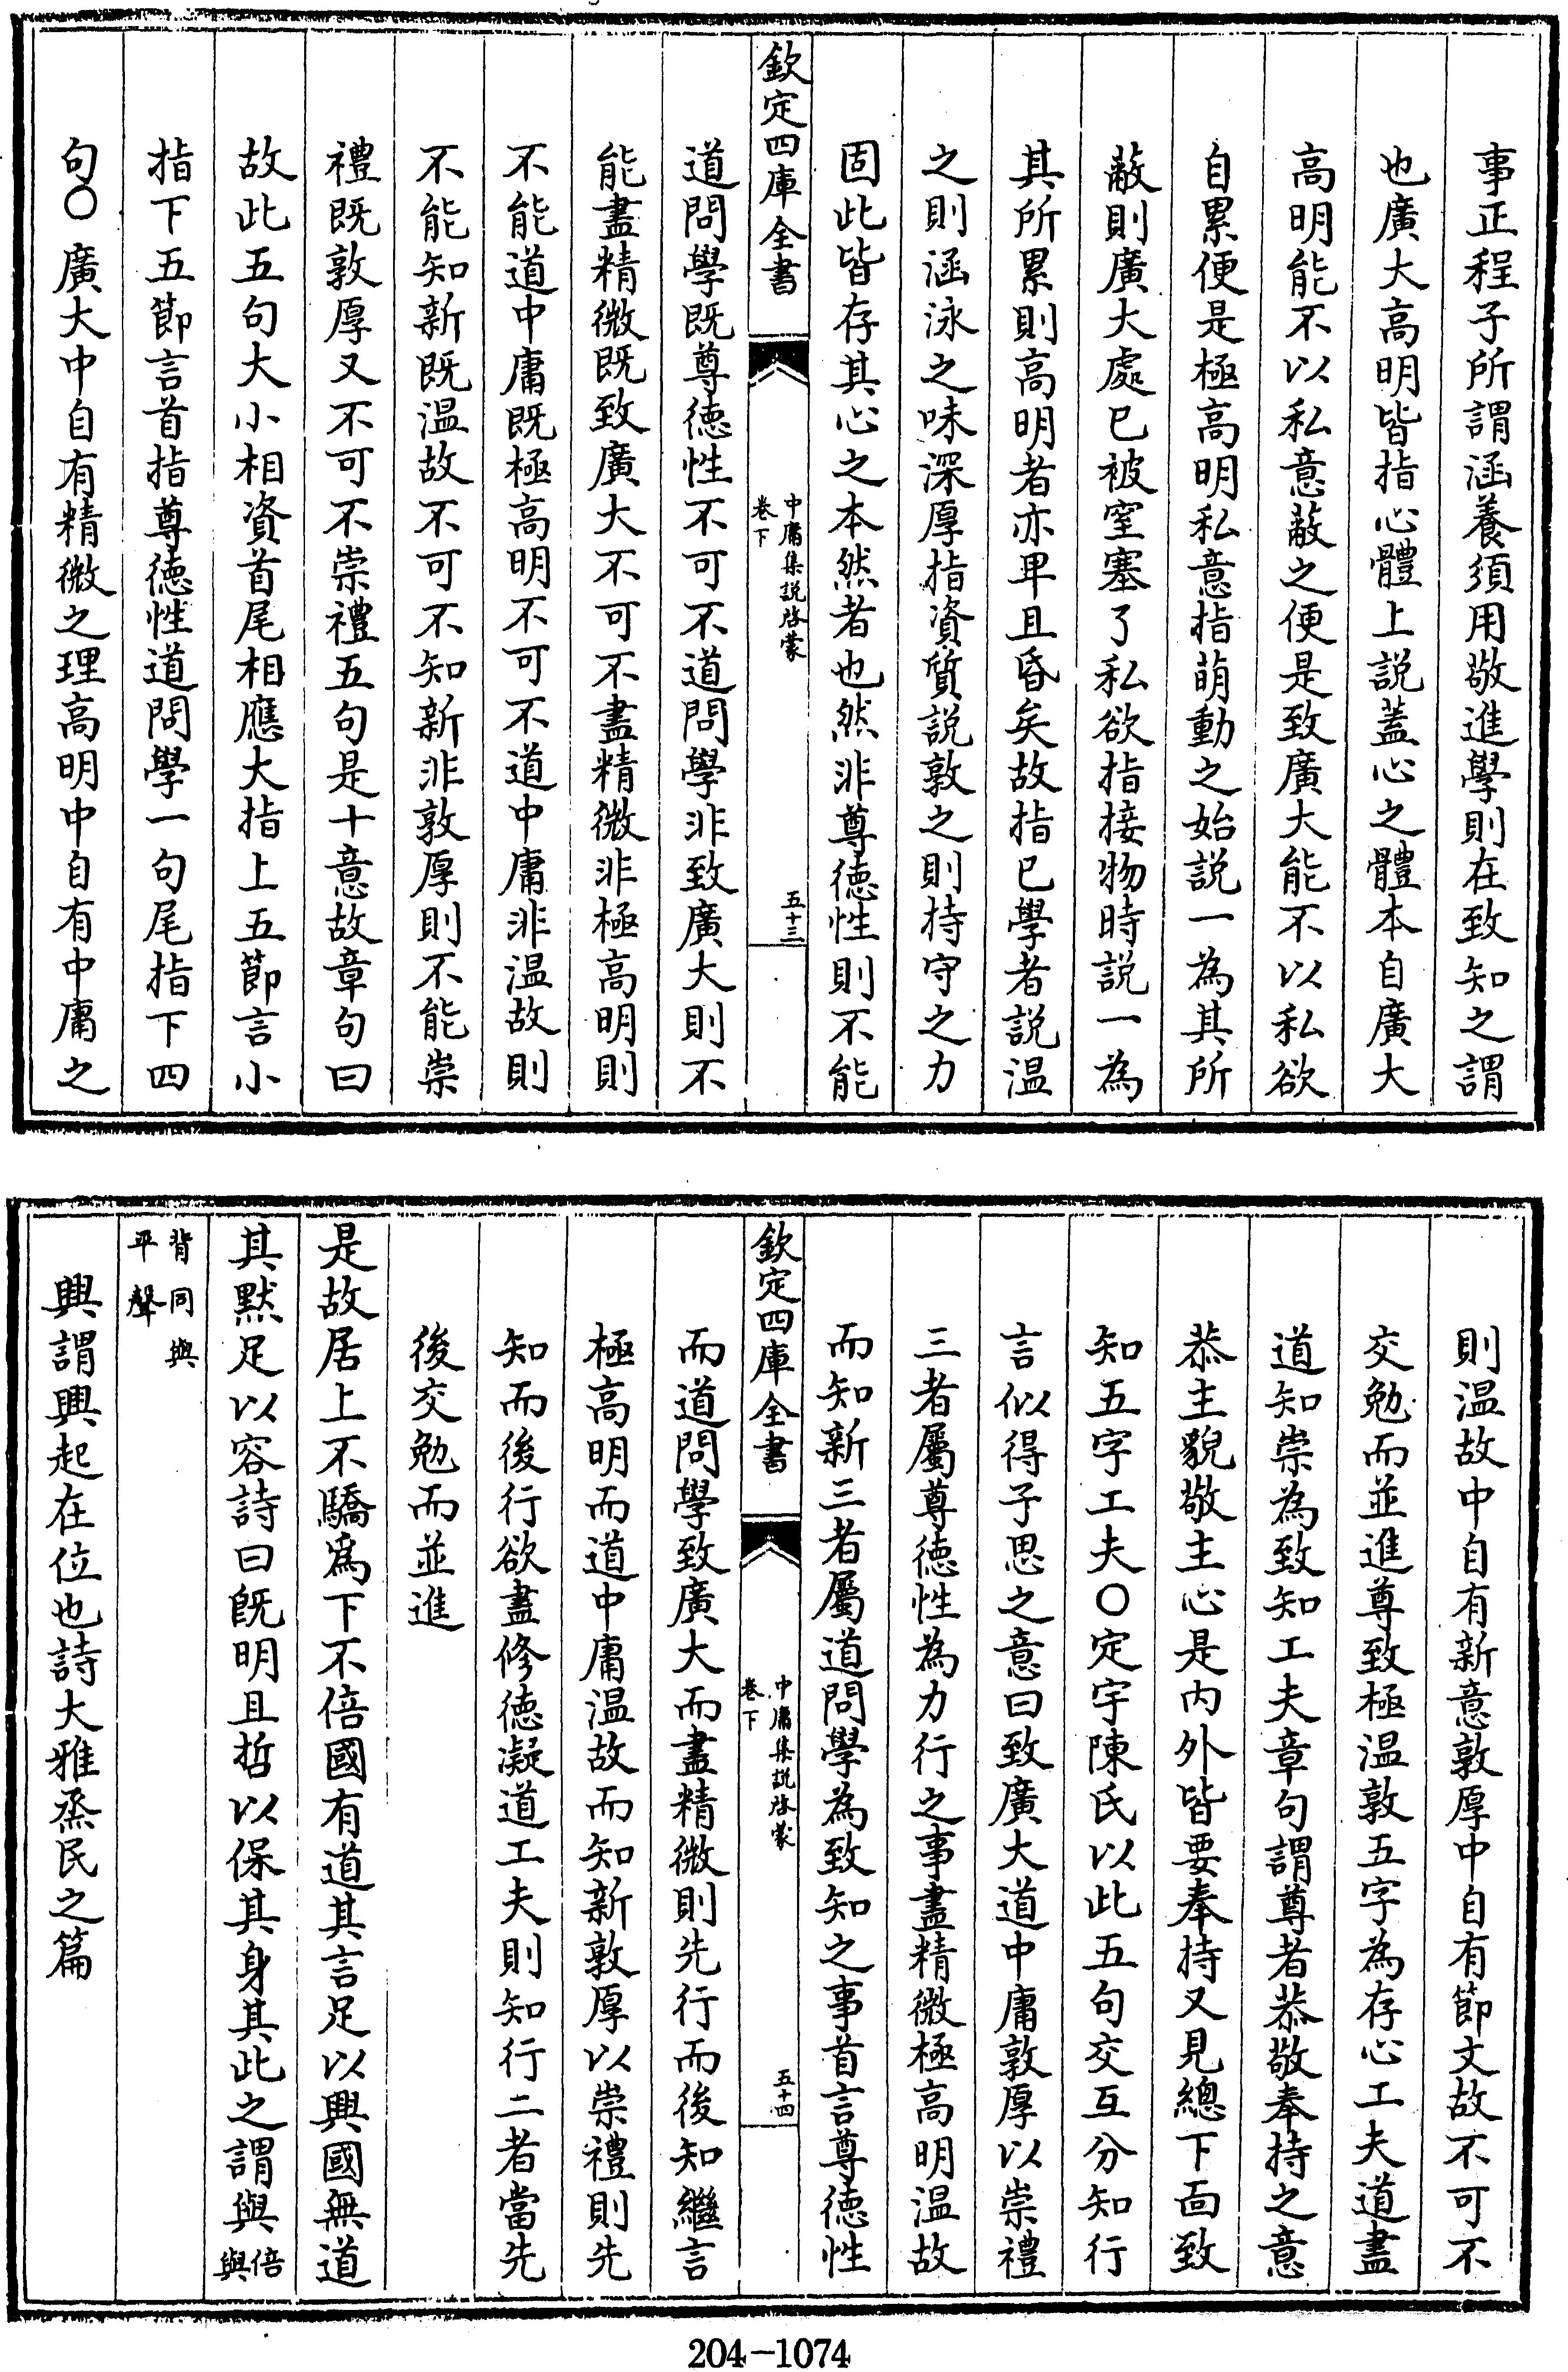 事正程子所謂涵養須用敬進學則在致知之謂
也廣大髙明皆指心體上說蓋心之體本自廣大
髙明能不以私意蔽之便是致廣大能不以私欲
自累便是極髙明私意指萌動之始說一為其所
蔽則廣大處已被窒塞了私欲指接物時說一為
其所累則髙明者亦卑且昏矣故指已學者說温
之則涵泳之味深厚指資質說敦之則持守之力
固此皆存其心之本然者也然非尊徳性則不能
欽定四庫全書
中庸集說啓蒙
卷下
五十三
道問學既尊徳性不可不道問學非致廣大則不
能盡精微既致廣大不可不盡精微非極髙明則
不能道中庸既極髙明不可不道中庸非温故則
不能知新既温故不可不知新非敦厚則不能崇
禮既敦厚又不可不崇禮五句是十意故章句曰
故此五句大小相資首尾相應大指上五節言小
指下五節言首指尊徳性道問學一句尾指下四
句○廣大中自有精微之理髙明中自有中庸之
則温故中自有新意敦厚中自有節文故不可不
交勉而並進尊致極温敦五字為存心工夫道盡
道知崇為致知工夫章句謂尊者恭敬奉持之意
恭主貌敬主心是内外皆要奉持又見總下面致
知五字工夫○定宇陳氏以此五句交互分知行
言似得子思之意曰致廣大道中庸敦厚以崇禮
三者屬尊徳性為力行之事盡精微極髙明温故
而知新三者屬道問學為致知之事首言尊徳性
欽定四庫全書
中庸集說啓蒙
卷下
五十四
而道問學致廣大而盡精微則先行而後知繼言
極髙明而道中庸温故而知新敦厚以崇禮則先
知而後行欲盡修徳凝道工夫則知行二者當先
後交勉而並進
是故居上不驕為下不倍國有道其言足以興國無道
其黙足以容詩曰旣明且哲以保其身其此之謂與倍與
背同與
平聲
興謂興起在位也詩大雅烝民之篇
204-1074